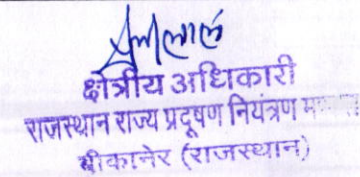 क्षेत्रीय अधिकारी
राजस्थान राज्य प्रदूषण नियंत्रण
बीकानेर (राजस्थान)